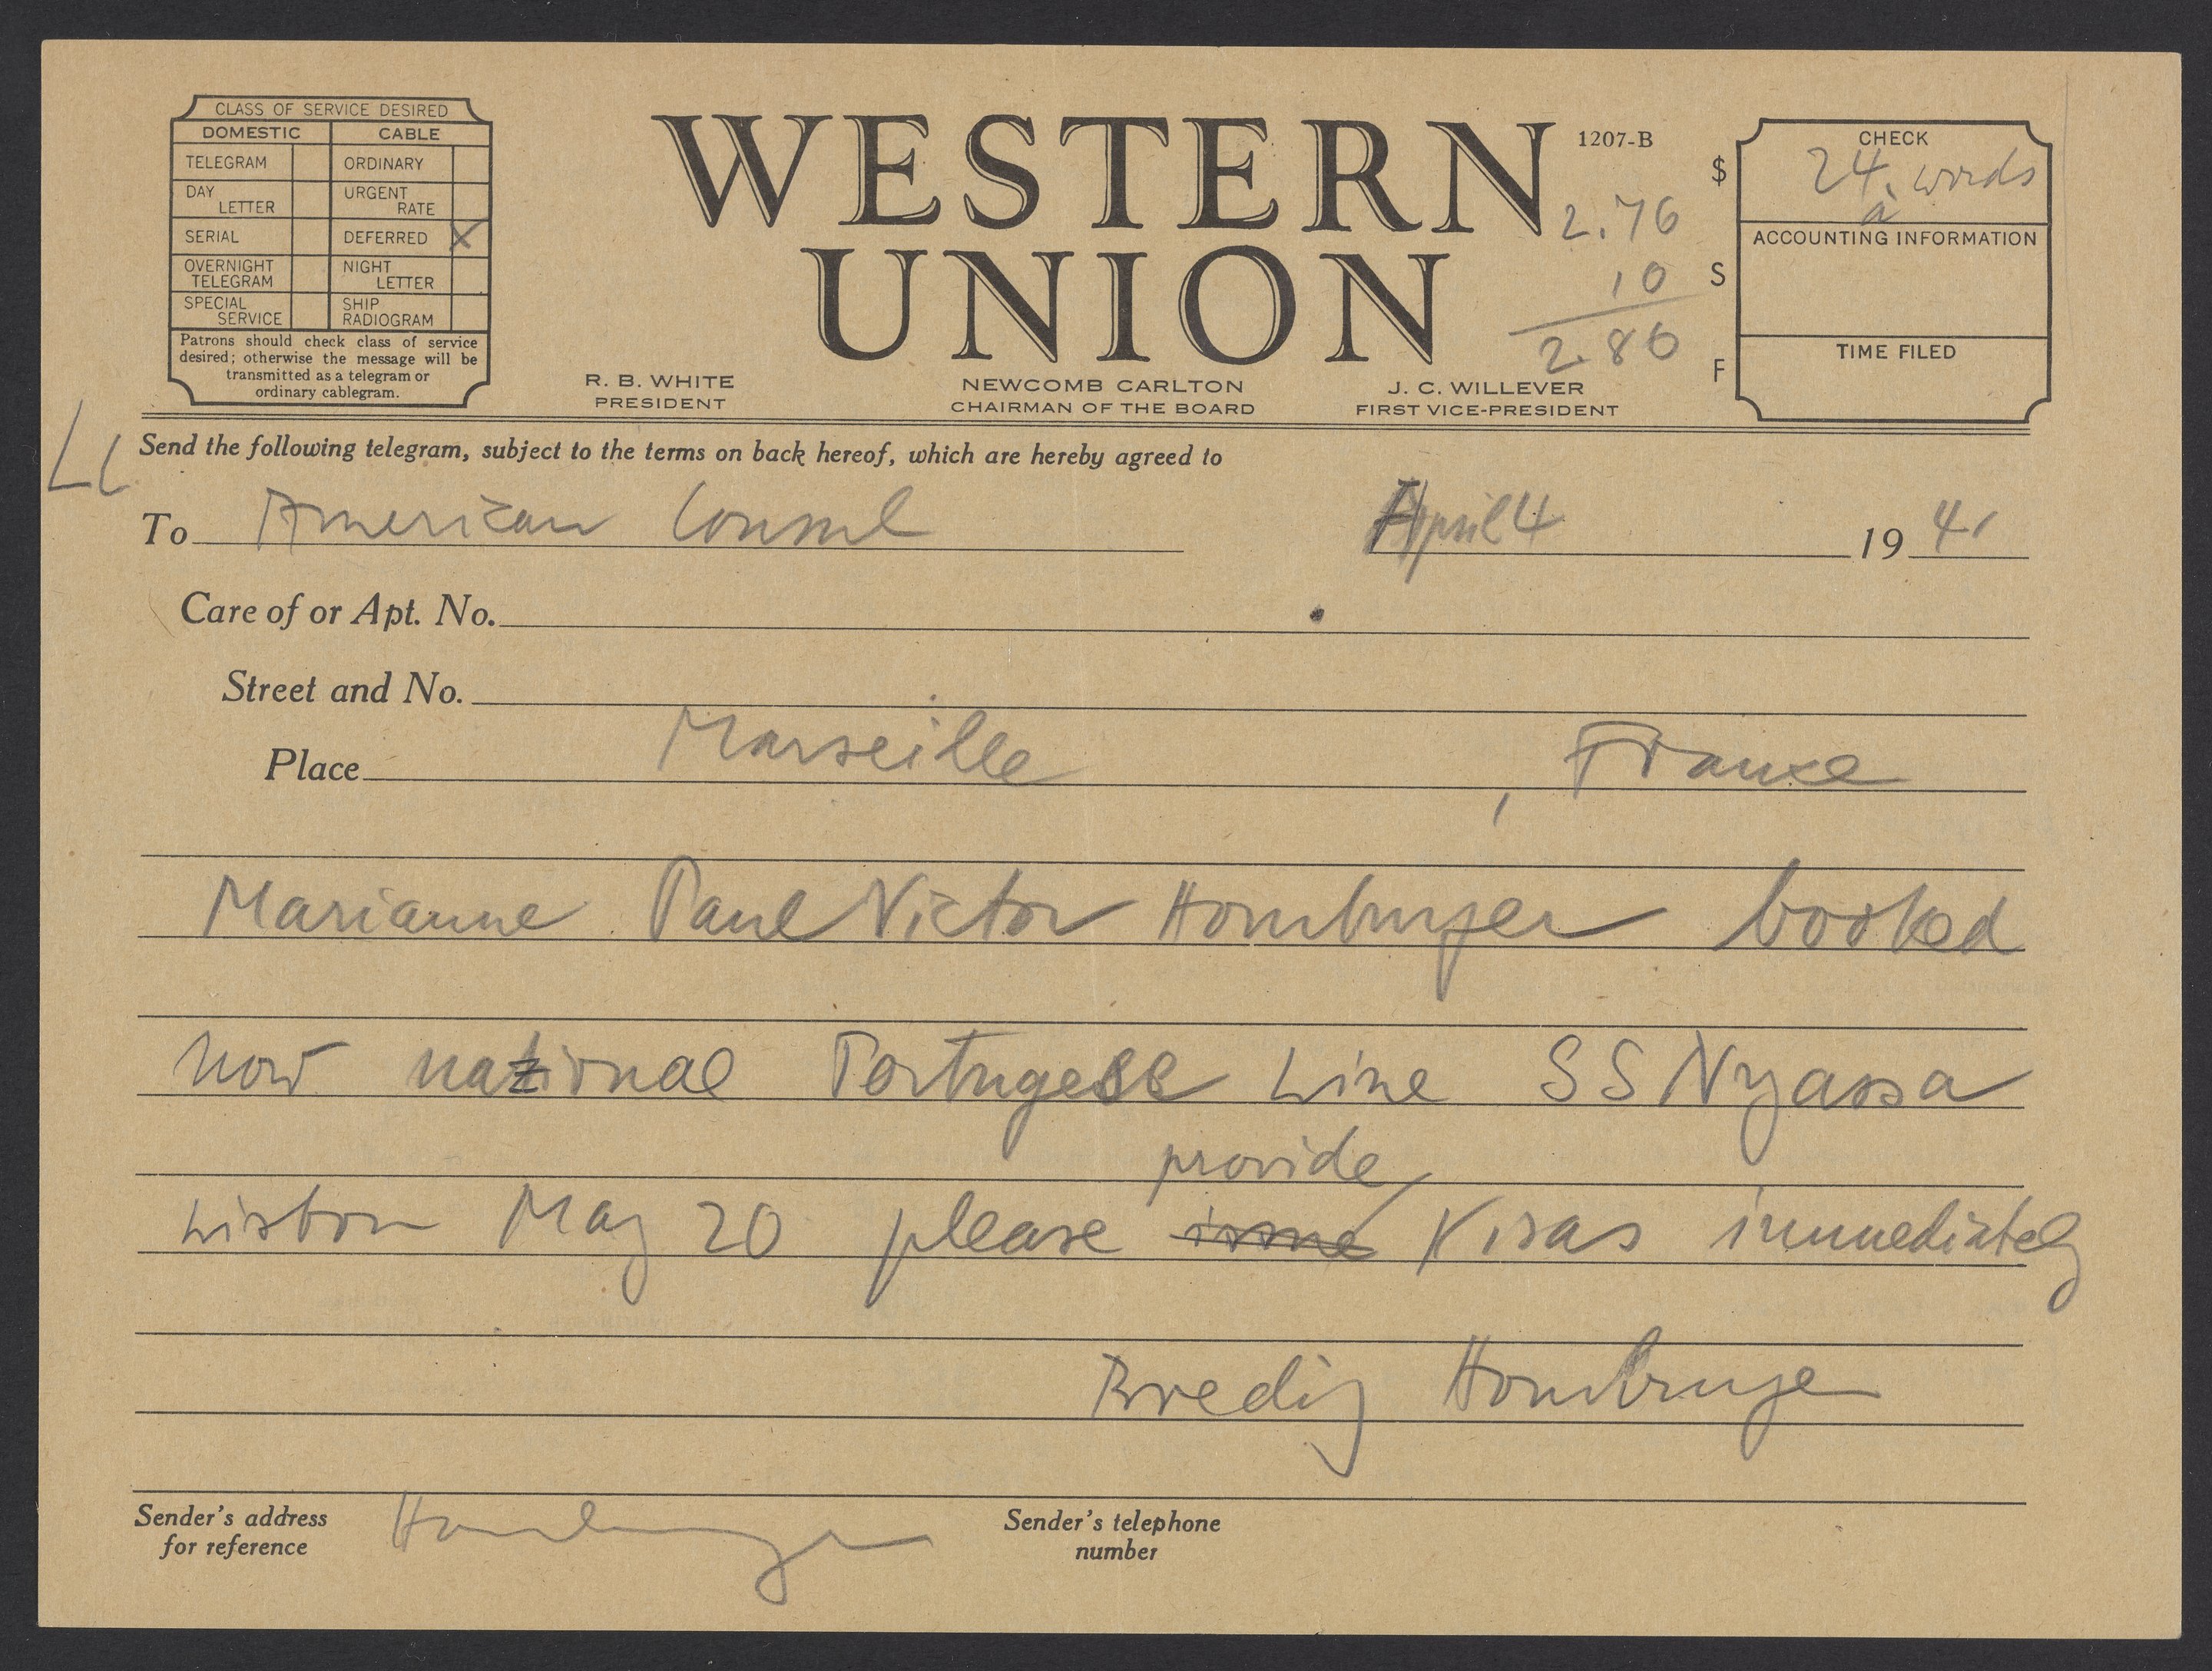 CLASS OF SERVICE DESIRED
DOMESTIC CABLE
TELEGRAM ORDINARY
DAY LETTER URGENT RATE
SERIAL DEFERRED X
OVERNIGHT TELEGRAM NIGHT LETTER
SPECIAL SERVICE SHIP RADIOGRAM
Patrons should check class of service
desired; otherwise the message will be
transmitted as a telegram or
ordinary cablegram.
WESTERN
UNION
1207-B
2.76
10
2.86
R. B. WHITE
PRESIDENT
NEWCOMB CARLTON
CHAIRMAN OF THE BOARD
J. C. WILLEVER
FIRST VICE-PRESIDENT
$
S
F
CHECK
24 words
a
ACCOUNTING INFORMATION
TIME FILED
LC
Send the following telegram, subject to the terms on back hereof, which are hereby agreed to
To American Consul April 4 19 41
Care of or Apt. No.
Street and No.
Place Marseille, France
Marianne Paul Victor Homburger booked
now national Portugese Line SS Nyassa
provide
Lisbon May 20 please issue Visas immediately
Bredig Homburger
Sender's address
for reference
Homburger
Sender's telephone
number